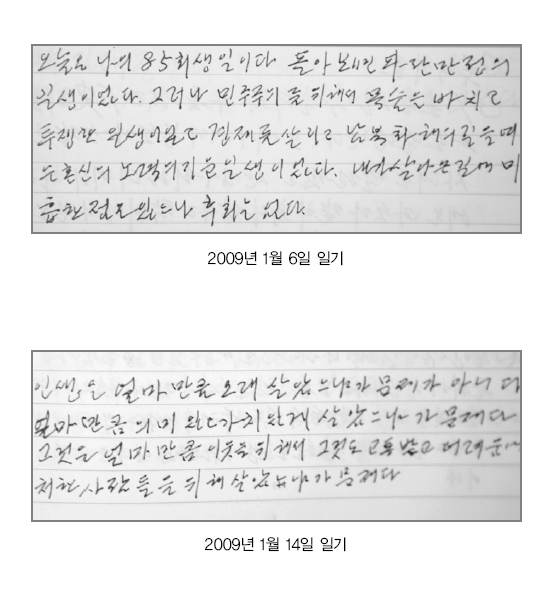 오늘은 나의 85회 생일이다. 돌아보면 파란만장의
일생이었다. 그러나 민주주의를 위해서 목숨을 바치고
투쟁한 일생이었고 경제를 살리고 남북화해의 길을 여
는 혼신의 노력의 일생이었다. 내가 살아온 길에 미
흡한 점은 있으나 후회는 없다.
2009년 1월 6일 일기
인생은 얼마만큼 오래 살았느냐가 문제가 아니다
얼마만큼 의미 있고 가치있게 살았느냐가 문제다
그것은 얼마만큼 이웃을 위해서 그것도 고통받고 어려움에
처한 사람들을 위해 살았느냐가 문제다
2009년 1월 14일 일기